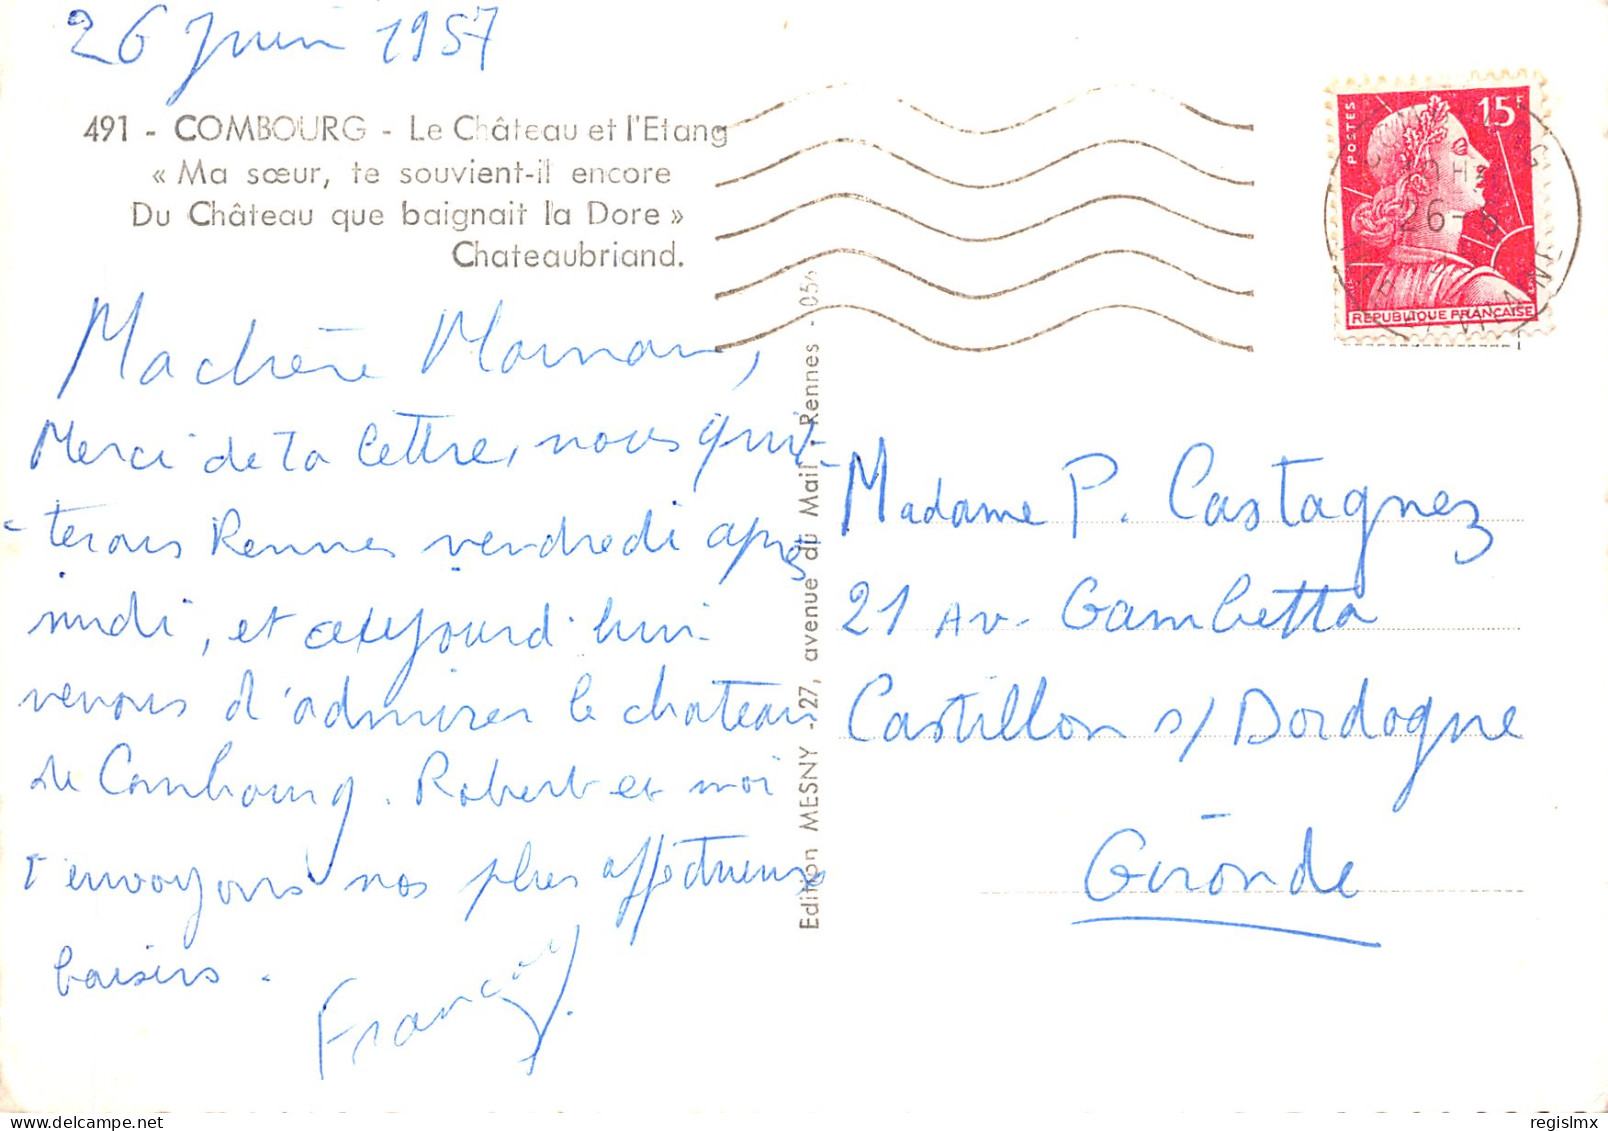 26 Juin 1957
491 - COMBOURG - Le Château et l'Etang
« Ma sœur, te souvient-il encore
Du Château que baignait la Dore »
Chateaubriand.
Ma chère Maman,
Merci de ta lettre, nous quit-
-terons Rennes vendredi après
midi, et aujourd'hui
venons d'admirer le chateau
de Combourg. Robert et moi
t'envoyons nos plus affectueux
baisers.
Edition MESNY - 27, avenue du Mail - Rennes - 054
POSTES
15F
REPUBLIQUE FRANÇAISE
26-6
Madame P. Castagnez
21 Av. Gambetta
Castillon s/ Dordogne
Gironde
regislmx